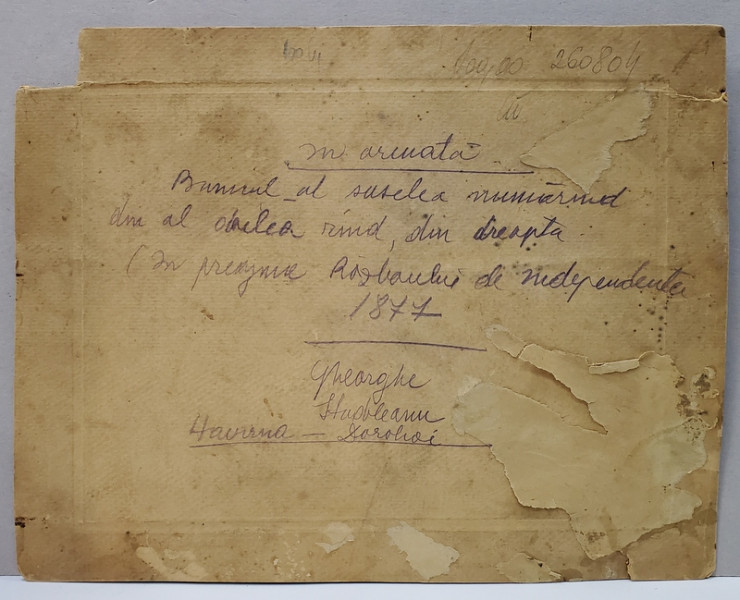 260804
În armată
Bunicul al saselea numărînd
din al doilea rînd, din dreapta.
(În preajma Războiului de Independenta
1877
Gheorghe
Havîrna - Dorohoi